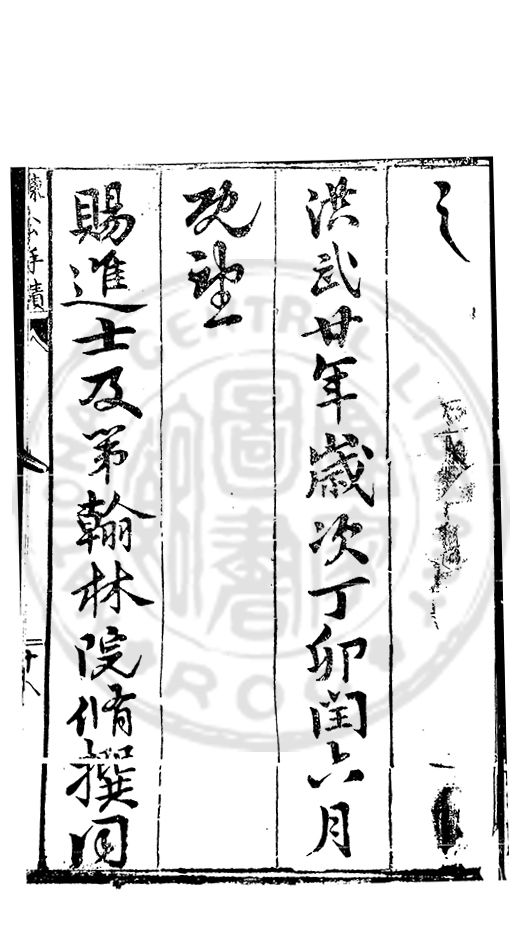 之
洪武廿年歲次丁卯閏六月
既望
賜進士及第翰林院脩撰同
公手蹟
十八
圖書
CENTRAL LIBRARY